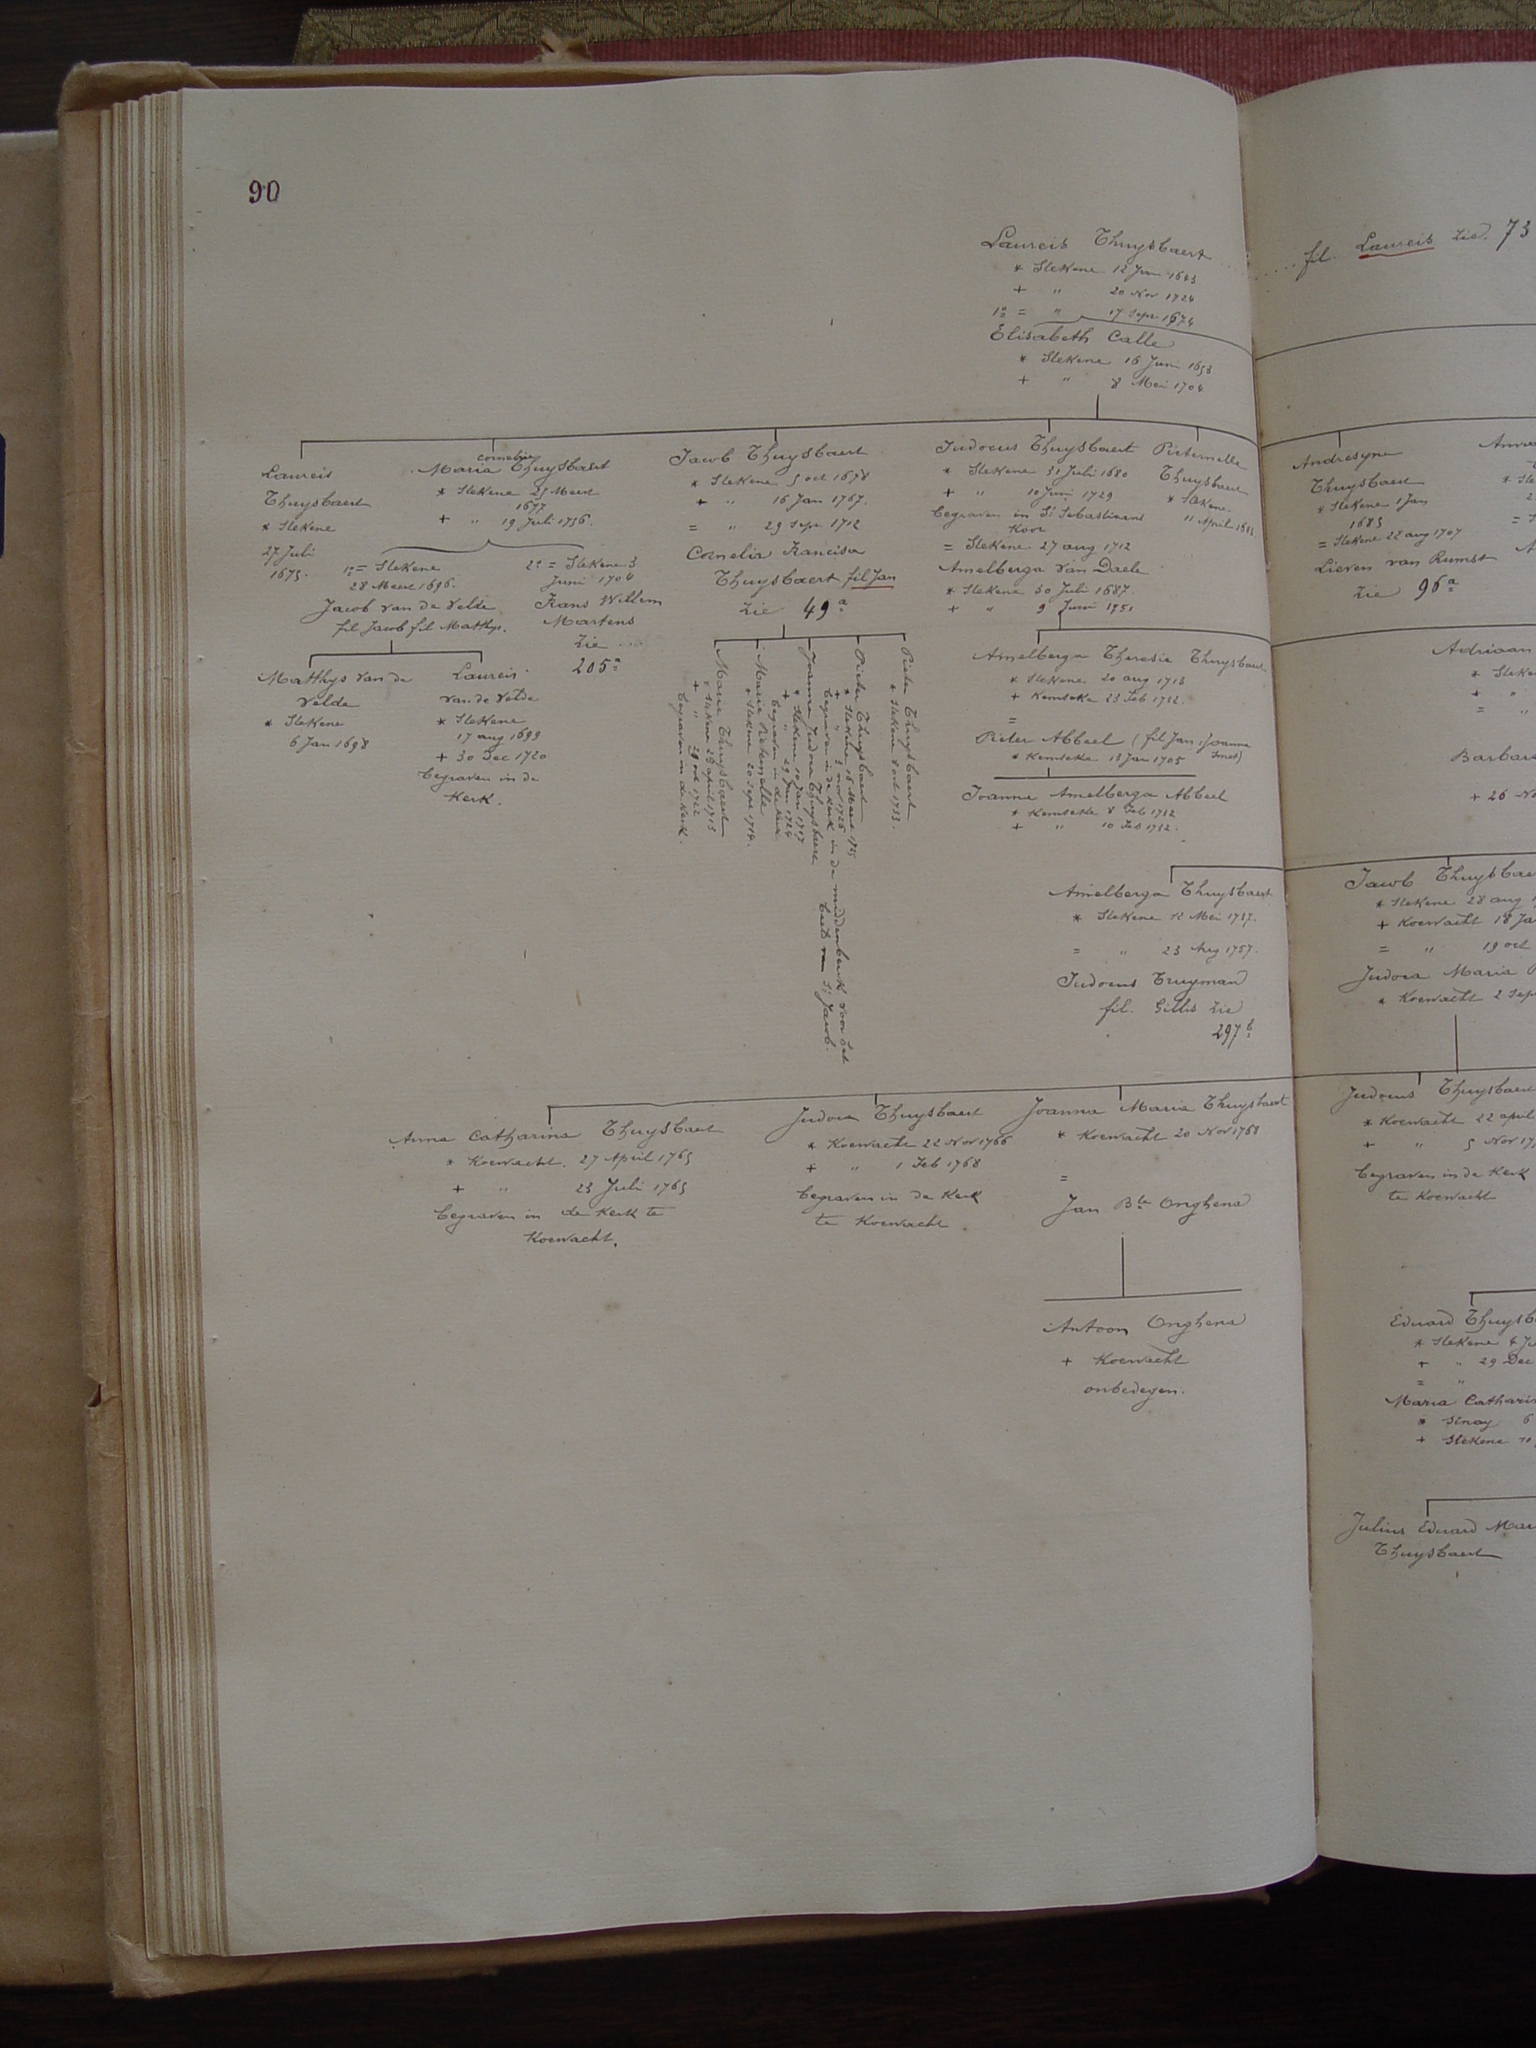 90
Laureis Thuysbaert
fil. Laureis zie. 73
* Stekene 12 Juni 1643
+ " 20 Nov 1724
1º = " 17 Sept 1674
Elisabeth Calle
* Stekene 16 Juni 1653
+ " 8 Mei 1704
Laureis
Thuysbaert
* Stekene
27 Juli
1675.
Cornelia
Maria Thuysbaert
* Stekene 25 Meert
1677
+ " 19 Juli 1736.
1º = Stekene
28 Meert 1696.
Jacob van de Velde
fil Jacob fil Matthys.
2º = Stekene 3
Juni 1704
Frans Willem
Martens
Zie
205ª
Matthys van de
Velde
* Stekene
6 Jan 1698
Laureis
van de Velde
* Stekene
17 aug 1699
+ 30 Dec 1720
begraven in de
Kerk.
Jacob Thuysbaert
* Stekene 5 oct 1678
+ " 16 Jan 1767.
= " 29 Sept 1712
Cornelia Francisca
Thuysbaert fil Jan
Zie 49ª
Marie Thuysbaert
* Stekene 25 april 1713
+ " 29 oct 1722
begraven in de Kerk.
Marie Pieternelle
* Stekene 20 Sept 1714.
Joanna Judoca Thuysbaert
* Stekene 10 Jan 1717
+ " 29 Jan 1724
begraven in de Kerk
Pieter Thuysbaert
* Stekene 16 Meert
+ " 3 nov 1726
begraven in de Kerk in de middenbeuk voor het
beeld van St Jacob.
Pieter Thuysbaert
* Stekene 8 oct 1733.
Judocus Thuysbaert
* Stekene 31 Juli 1680
+ " 10 Juni 1729
begraven in St Sebastiaans
Koor
= Stekene 27 aug 1712
Amelberga van Daele
* Stekene 30 Juli 1687.
+ " 9 Juni 1751
Pieternelle
Thuysbaert
* Stekene
11 April
Andresyne
Thuysbaert
* Stekene 1 Jan
1685
= Stekene 22 aug 1707
Lieven van Rumst
Zie 96ª
Amelberga Theresia Thuysbaert
* Stekene 20 aug 1713
+ Kemseke 23 Feb 1732.
=
Pieter Abbeel (fil Jan & Joanna
Smet)
* Kemseke 13 Jan 1705
Joanna Amelberga Abbeel
* Kemseke 8 Feb 1732
+ " 10 Feb 1732.
Adriaan
* Steke
+ "
= "
Barbara
+ 26 No
Amelberga Thuysbaert
* Stekene 12 Mei 1737.
= " 23 Aug 1757.
Judocus Truyman
fil. Gillis Zie
297ᵇ
Jacob Thuysbaer
* Stekene 28 aug
+ Koewacht 18 Ja
= " 19 oct
Judoca Maria
* Koewacht 2 Sep
Anna Catharina Thuysbaert
* Koewacht. 27 April 1765
+ " 23 Juli 1765
begraven in de Kerk te
Koewacht.
Judoca Thuysbaert
* Koewacht 22 Nov 1766
+ " 1 Feb 1768
begraven in de Kerk
te Koewacht
Joanna Maria Thuysbaert
* Koewacht 20 Nov 1768
=
Jan Bte Onghena
Antoon Onghena
+ Koewacht
onbedegen.
Judocus Thuysbaert
* Koewacht 22 april
+ " 5 Nov 17
begraven in de Kerk
te Koewacht
Eduard Thuysb
* Stekene 4 Ju
+ " 29 Dec
= "
Maria Cathari
* Sinay 6
+ Stekene
Julius Eduard Mar
Thuysbaert